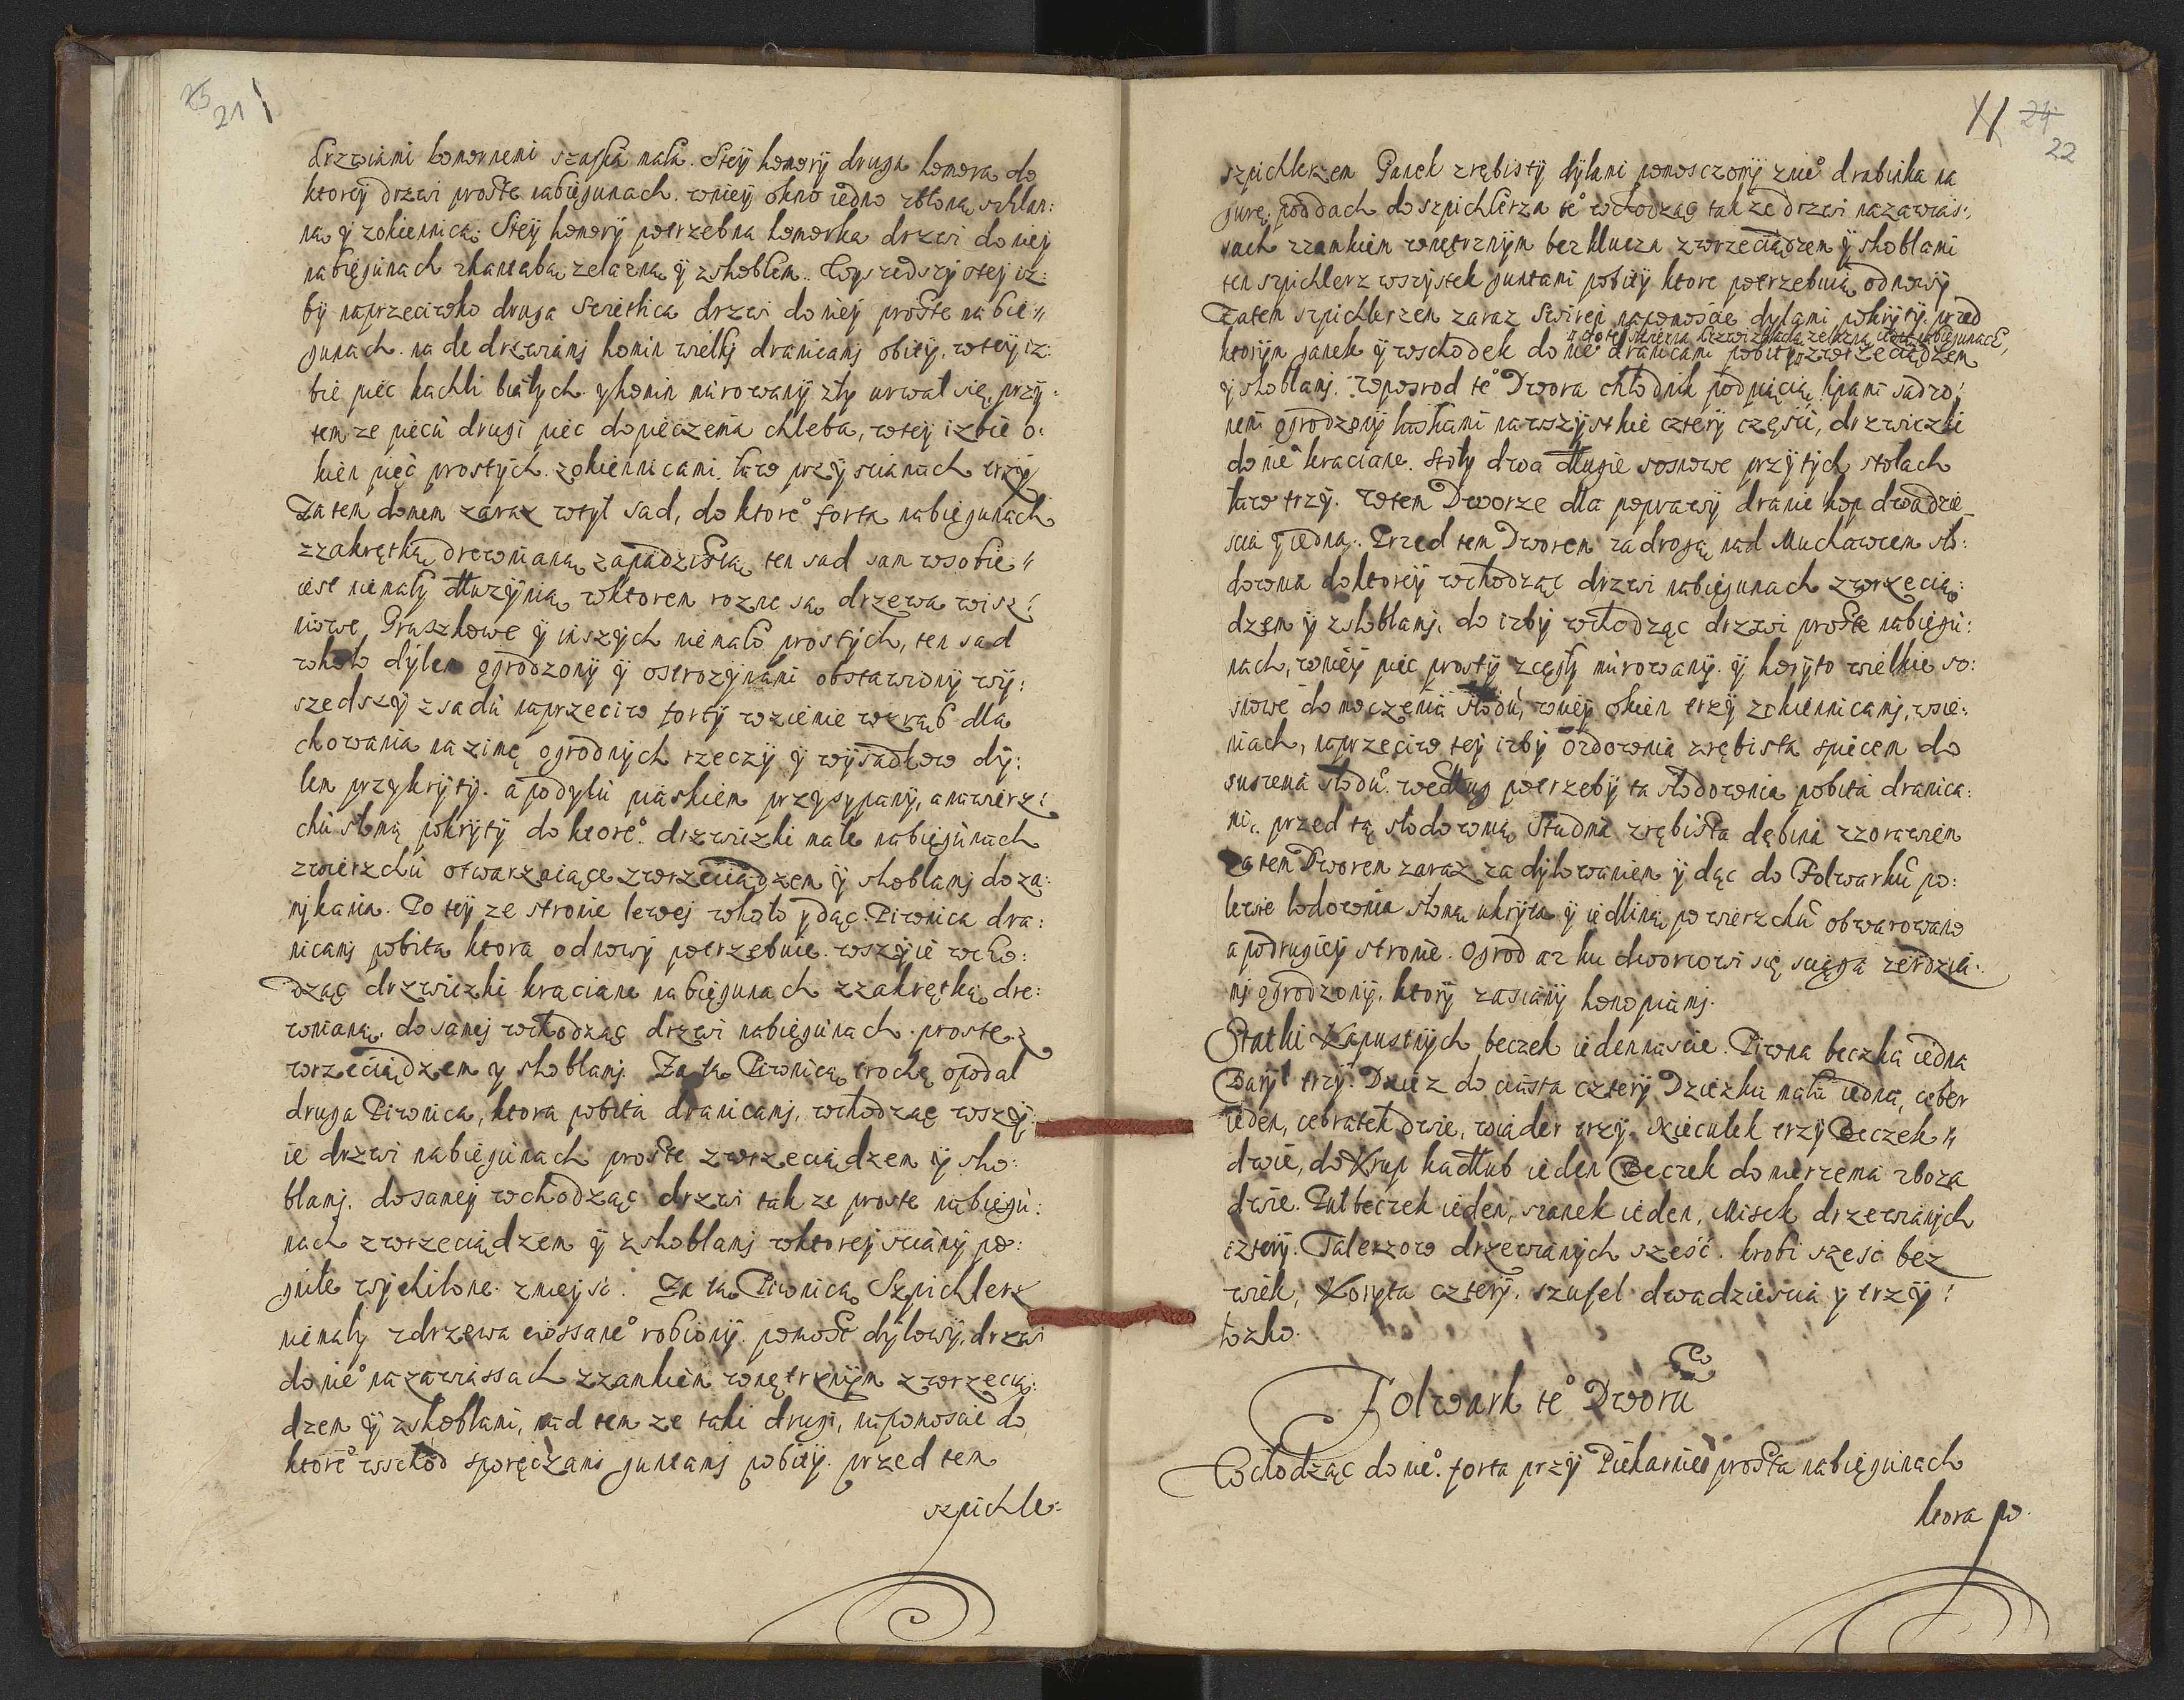 25
21
drzwiami komornemi szafka mała. Stey komory druga komora do
ktorey drzwi proste nabiegunach. wniey okno iedno zbłoną szklan:
ną y zokiennicą. Stey komory potrzebna komorka drzwi do niey
nabiegunach zkantabą zelazną y zskoblem. Wyszedszy stey iz:
by naprzeciwko druga Swietlica drzwi do niey proste na bie"
gunach. na de drzwiamj komin wielkj dranicamj obity. wtey iz:
bie piec kachli białych y komin murowany zły urwał się, przy:
tem ze piecu drugi piec do pieczenia chleba, wtey izbie o:
kien pięć prostych. zokiennicami. ław przy scianach trzy
Za tem domem zaraz wtył sad, do ktore° forta nabiegunach
zzakrętką drewnianą zapadzistą ten sad sam wsobie "
iest niemały dłuzynią wktorem rozne są drzewa wisz:
niowe Gruszkowe y inszych niemało prostych, ten sad
wkoło dylem ogrodzony y ostrozynami obstawiony wy:
szedszy zsadu naprzeciw forty wziemie wzrąb dla
chowania na zimę ogrodnych rzeczy y wysadkow dy:
lem przykryty. a podylu piaskiem przysypany, a nawierz:
chu słomą pokryty do ktore°. drzwiczki małe nabiegunach
zwierzchu otwarzaiące zwrzeciądzem y skoblamj do za:
mykania. Po tey ze stronie lewej wkoło ydąc. Piwnica dra:
nicamj pobita ktora odnowy potrzebuie. wszyie wcho:
dząc drzwiczki kraciane nabiegunach zzakrętką dre:
wnianą. do samej wchodząc drzwi nabiegunach. proste. z
wrzeciądzem y skoblamj. Za tą Piwnicą trochę opodal
druga Piwnica, ktora pobita dranicamj, wchodząc wszy:
ie drzwi nabiegunach proste zwrzeciądzem y sko:
blamj. do samey wchodząc drzwi tak ze proste nabiegu:
nach zwrzeciądzem y zskoblamj wktorej sciany po:
gniłe wychilone. zmieysc. Za tą Piwnicą Szpichlerz
niemały zdrzewa ciossane° robiony. pomost dylowy. drzwi
do nie° nazawiassach zzamkiem wnętrznym zwrzecią:
dzem y zskoblami, nad tem ze taki drugi, napomoscie do
ktore° wschod sporęczami guntamj pobity. przed tem
szpichle:
24
22
szpichlerzem Ganek zrębisty dylami pomosczony znie° drabinka na
gurę, pod dach do szpichlerza te° wchodząc takze drzwi nazawias:
sach zzamkiem wnętrznym bez klucza zwrzeciądzem y skoblami
ten szpichlerz wszystek guntami pobity ktore potrzebuią odnowy
Zatem szpichlerzem zaraz Swiren napomoscie dylami pokryty. przed
ktorym ganek y wschodek do nie° dranicami pobity zwrzeciądzem
y skoblamj. wposrod te° Dwora chłodnik pod pięcią lipami sadzo:
nemi ogrodzony łaskami nawszystkie cztery części, drzwiczki
do nie° kraciane. stoły dwa długie sosnowe przy tych stołach
ław trzy. Wtem Dworze dla poprawy dranic kop dwadzie_
scia y iedna. Przed tem Dworem za drogą nad Muchawcem sło:
downia do ktorey wchodząc drzwi nabiegunach zwrzecią:
dzem y zskoblamj. do izby wchodząc drzwi proste nabiegu:
nach, wniey piec prosty zcegły murowany. y koryto wielkie so:
snowe do moczenia słodu, wniey okien trzy zokiennicamj, wsie:
niach, naprzeciw tey izby Ozdownia zrębista spiecem do
suszenia słodu. według potrzeby ta słodownia pobita dranica:
mi. przed tą słodownią Studnia zrębista dębina zzorawiem
Za tem Dworem zaraz za dylowaniem ydąc do Folwarku po:
lewie lodownia słomą ukryta y iedliną powierzchu obwarowano
a podrugiey stronie. Ogrod az ku dworcowi się sciąga zerdzia:
mj ogrodzony, ktory zasiany konopiamj.
Statki Kapustnych beczek iedennascie. Piwna beczka iedna
Barył trzy. Dziez do ciasta cztery Dziezka mała iedna, ceber
ieden, cebratek dwie, wiader trzy. Niecułek trzy Beczek "
dwie, do Krup kadłub ieden Beczek do mierzenia zboza
dwie. Pułbeczek ieden, szanek ieden, Misek drzewianych
cztery. Talerzow drzewianych sześć. krobi szesc bez
wiek, Koryta cztery. szufel dwadziescia y trzy:
łozko.
Folwark te° Dworu
Wchodząc do nie°. forta przy Piekarniey prosta nabiegunach
ktora po